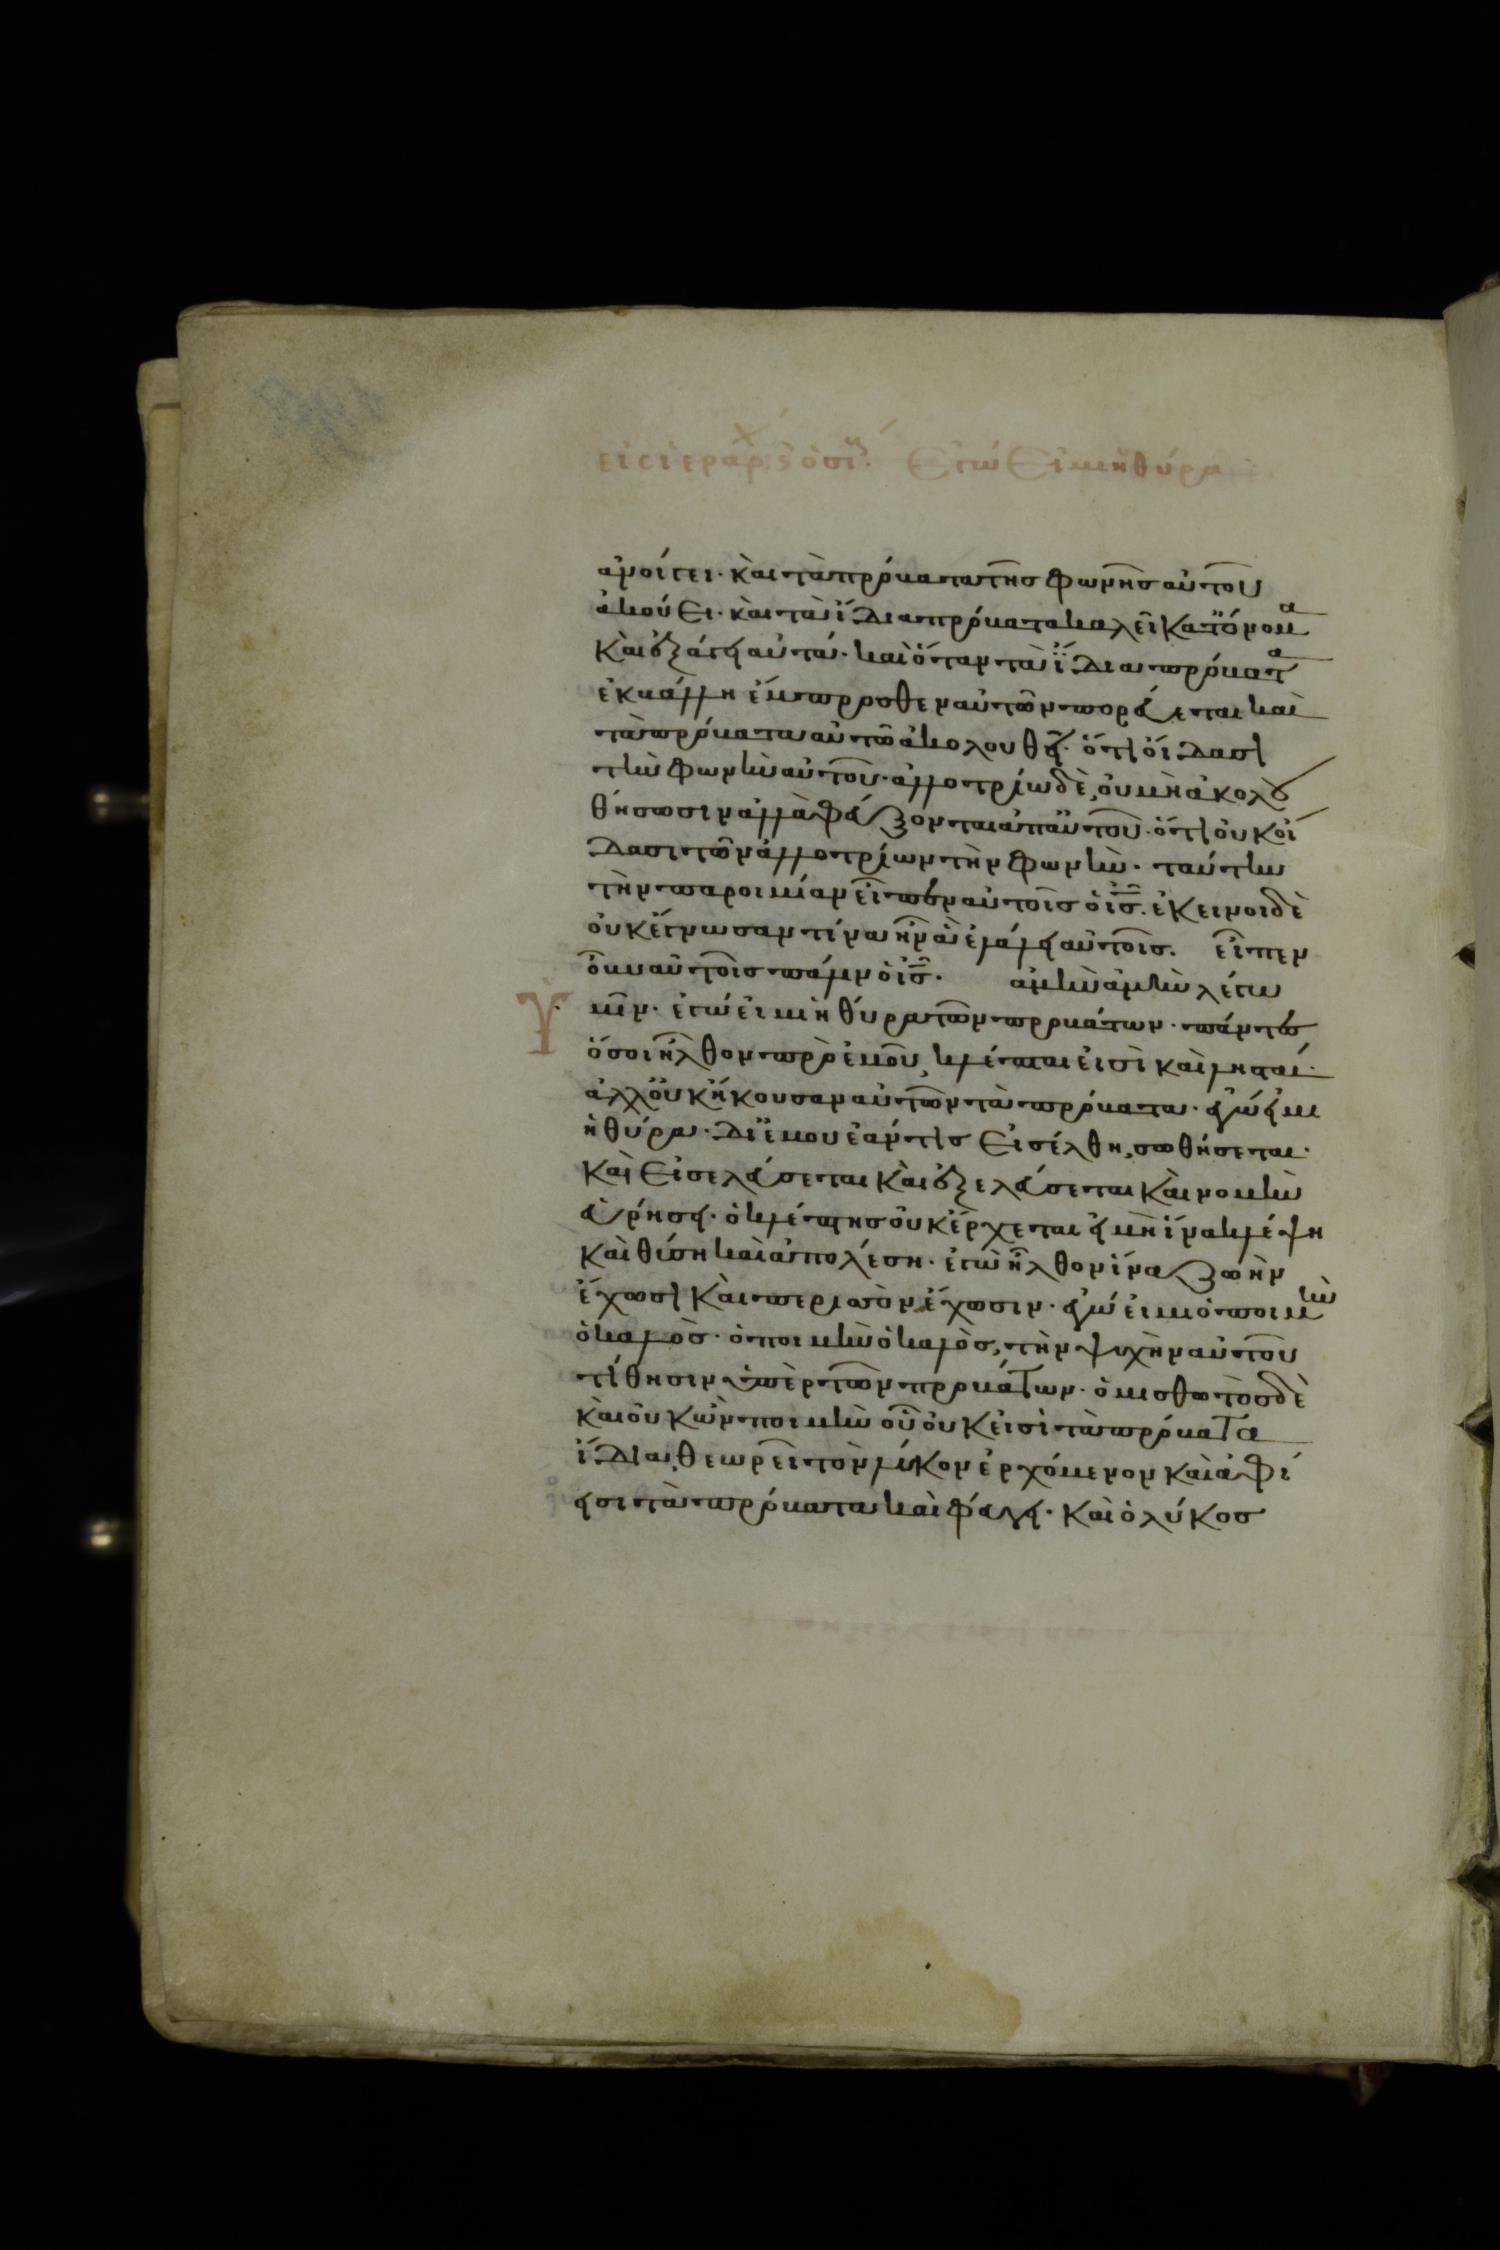 εἰς ἱεράρχ ϛ ὁσί Ἐγώ Εἰμι ἡ θύρα
ἀνοίγει· καὶ τὰ πρόβατα τῆς φωνῆς αὐτοῦ
ἀκούει· καὶ τὰ ἴδια πρόβατα καλεῖ κατ' ὄνομα
καὶ ἐξάγει αὐτά· καὶ ὅταν τὰ ἴδια πρόβατα
ἐκβάλλη ἔμπροσθεν αὐτῶν πορεύεται καὶ
τὰ πρόβατα αὐτῶ ἀκολουθεῖ· ὅτι οἴδασι
τὴν φωνὴν αὐτοῦ· ἀλλοτρίω δὲ, οὐ μὴ ἀκολου
θήσωσιν ἀλλὰ φεύξονται ἀπ' αὐτοῦ· ὅτι οὐκ οἴ
δασι τῶν ἀλλοτρίων τὴν φωνήν· ταύτην
τὴν παροιμίαν εἶπεν αὐτοῖς ὁ ἰς· ἐκεῖνοι δὲ
οὐκ ἔγνωσαν τίνα ἦν ἃ ἐλάλει αὐτοῖς. εἶπεν
οὖν αὐτοῖς πάλιν ὁ ἰς· ἀμὴν ἀμὴν λέγω
Ὑμῖν· ἐγώ εἰμι ἡ θύρα τῶν προβάτων· πάντες
ὅσοι ἦλθον πρὸ ἐμοῦ, κλέπται εἰσὶ καὶ λησταί·
ἀλλ' οὐκ ἤκουσαν αὐτῶν τὰ πρόβατα· ἐγώ εἰμι
ἡ θύρα· δι' ἐμοῦ ἐάν τις εἰσέλθη, σωθήσεται·
καὶ εἰσελεύσεται καὶ ἐξελεύσεται καὶ νομὴν
εὑρήσει· ὁ κλέπτης οὐκ ἔρχεται εἰ μὴ ἵνα κλέψη
καὶ θύση καὶ ἀπολέση· ἐγὼ ἦλθον ἵνα ζωὴν
ἔχωσι καὶ περισσὸν ἔχωσιν· ἐγώ εἰμι ὁ ποιμὴν
ὁ καλὸς· ὁ ποιμὴν ὁ καλὸς, τὴν ψυχὴν αὐτοῦ
τίθησιν ὑπὲρ τῶν προβάτων· ὁ μισθωτὸς δὲ
καὶ οὐκ ὢν ποιμὴν οὗ οὐκ εἰσὶ τὰ πρόβατα
ἴδια, θεωρεῖ τὸν λύκον ἐρχόμενον καὶ ἀφί
ησι τὰ πρόβατα καὶ φεύγει· καὶ ὁ λύκος